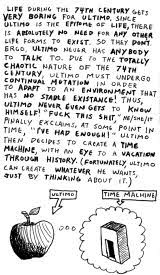 LIFE DURING THE 79TH CENTURY GETS
VERY BORING FOR ULTIMO, SINCE
ULTIMO IS THE EPITOME OF LIFE, THERE
IS ABSOLUTELY NO NEED FOR ANY OTHER
LIFE FORMS TO EXIST. SO THEY DON'T.
ERGO, ULTIMO NEVER HAS ANYBODY
TO TALK TO. DUE TO THE TOTALLY
CHAOTIC NATURE OF THE 79TH
CENTURY, ULTIMO MUST UNDERGO
CONTINUAL MUTATION IN ORDER
TO ADAPT TO AN ENVIRONMENT THAT
HAS NO STABLE EXISTANCE! THUS,
ULTIMO NEVER EVEN GETS TO KNOW
HIMSELF! "FUCK THIS SHIT," HE/SHE/IT
FINALLY EXCLAIMS, AT SOME POINT IN
TIME, "I'VE HAD ENOUGH!" ULTIMO
THEN DECIDES TO CREATE A TIME
MACHINE, WITH AN EYE TO A VACATION
THROUGH HISTORY. (FORTUNATELY ULTIMO
CAN CREATE WHATEVER HE WANTS,
JUST BY THINKING ABOUT IT.)
ULTIMO
TIME MACHINE